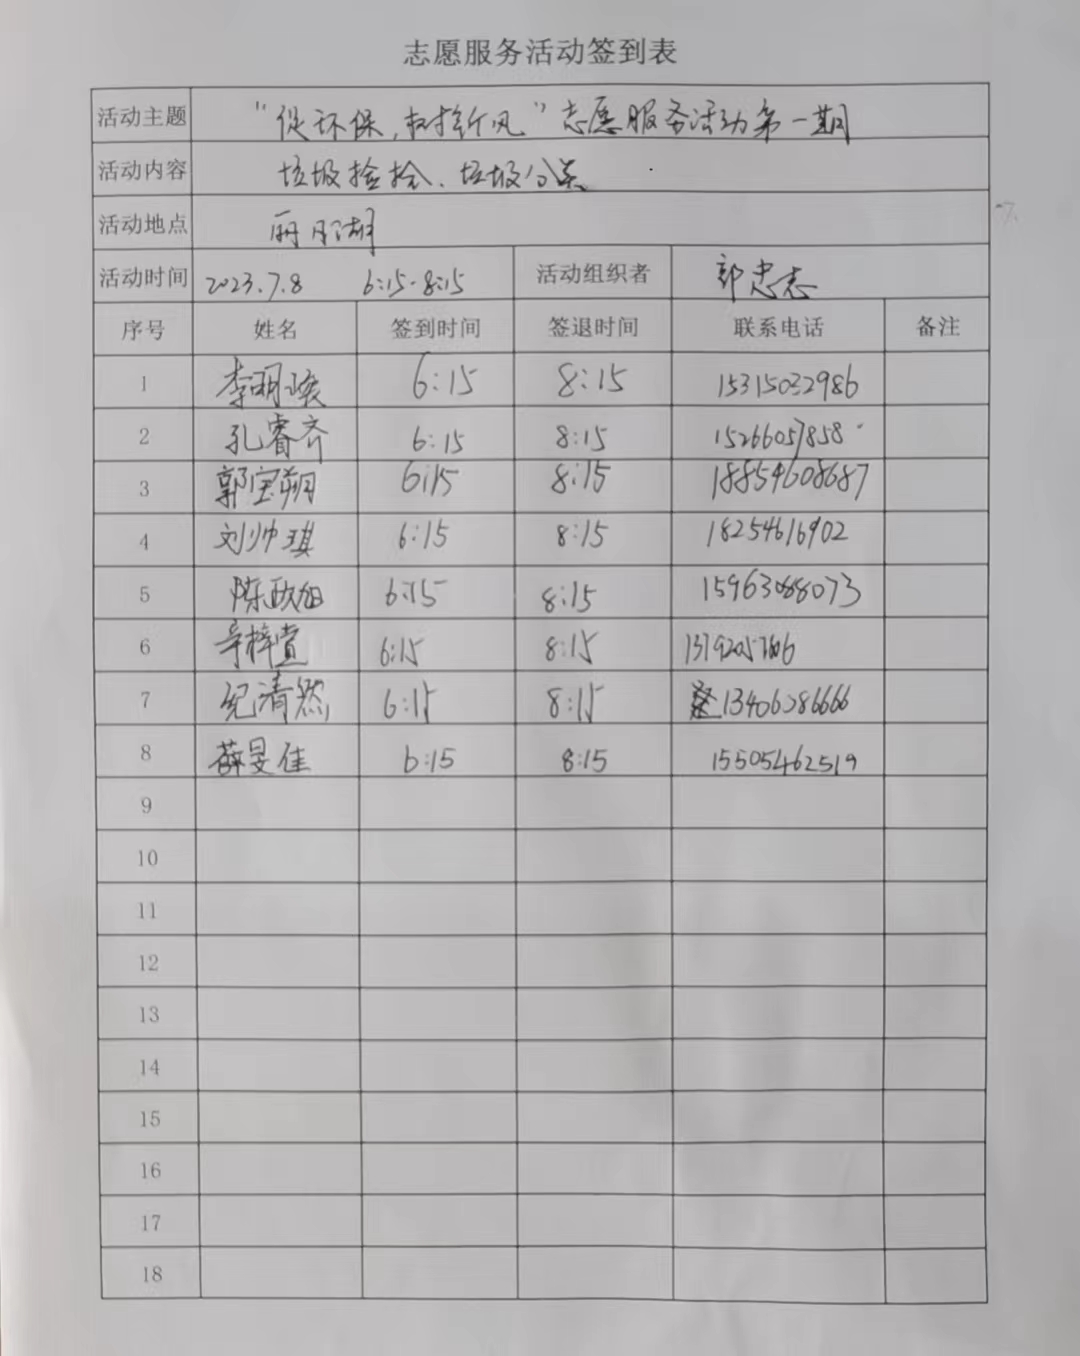 志愿服务活动签到表
活动主题 "促环保,树新风"志愿服务活动第一期
活动内容 垃圾捡拾、垃圾分类
活动地点 丽月湖
活动时间 2023.7.8 6:15-8:15 活动组织者 郭忠志
序号 姓名 签到时间 签退时间 联系电话 备注
1 李明 6:15 8:15 15315032986
2 孔睿齐 6:15 8:15 15266057858
3 郭宝朔 6:15 8:15 18854608687
4 刘帅琪 6:15 8:15 18254616902
5 陈政旭 6:15 8:15
6 辛梓萱 6:15 8:15
7 纪清然 6:15 8:15 13406286666
8 薛旻佳 6:15 8:15 15505462519
9
10
11
12
13
14
15
16
17
18